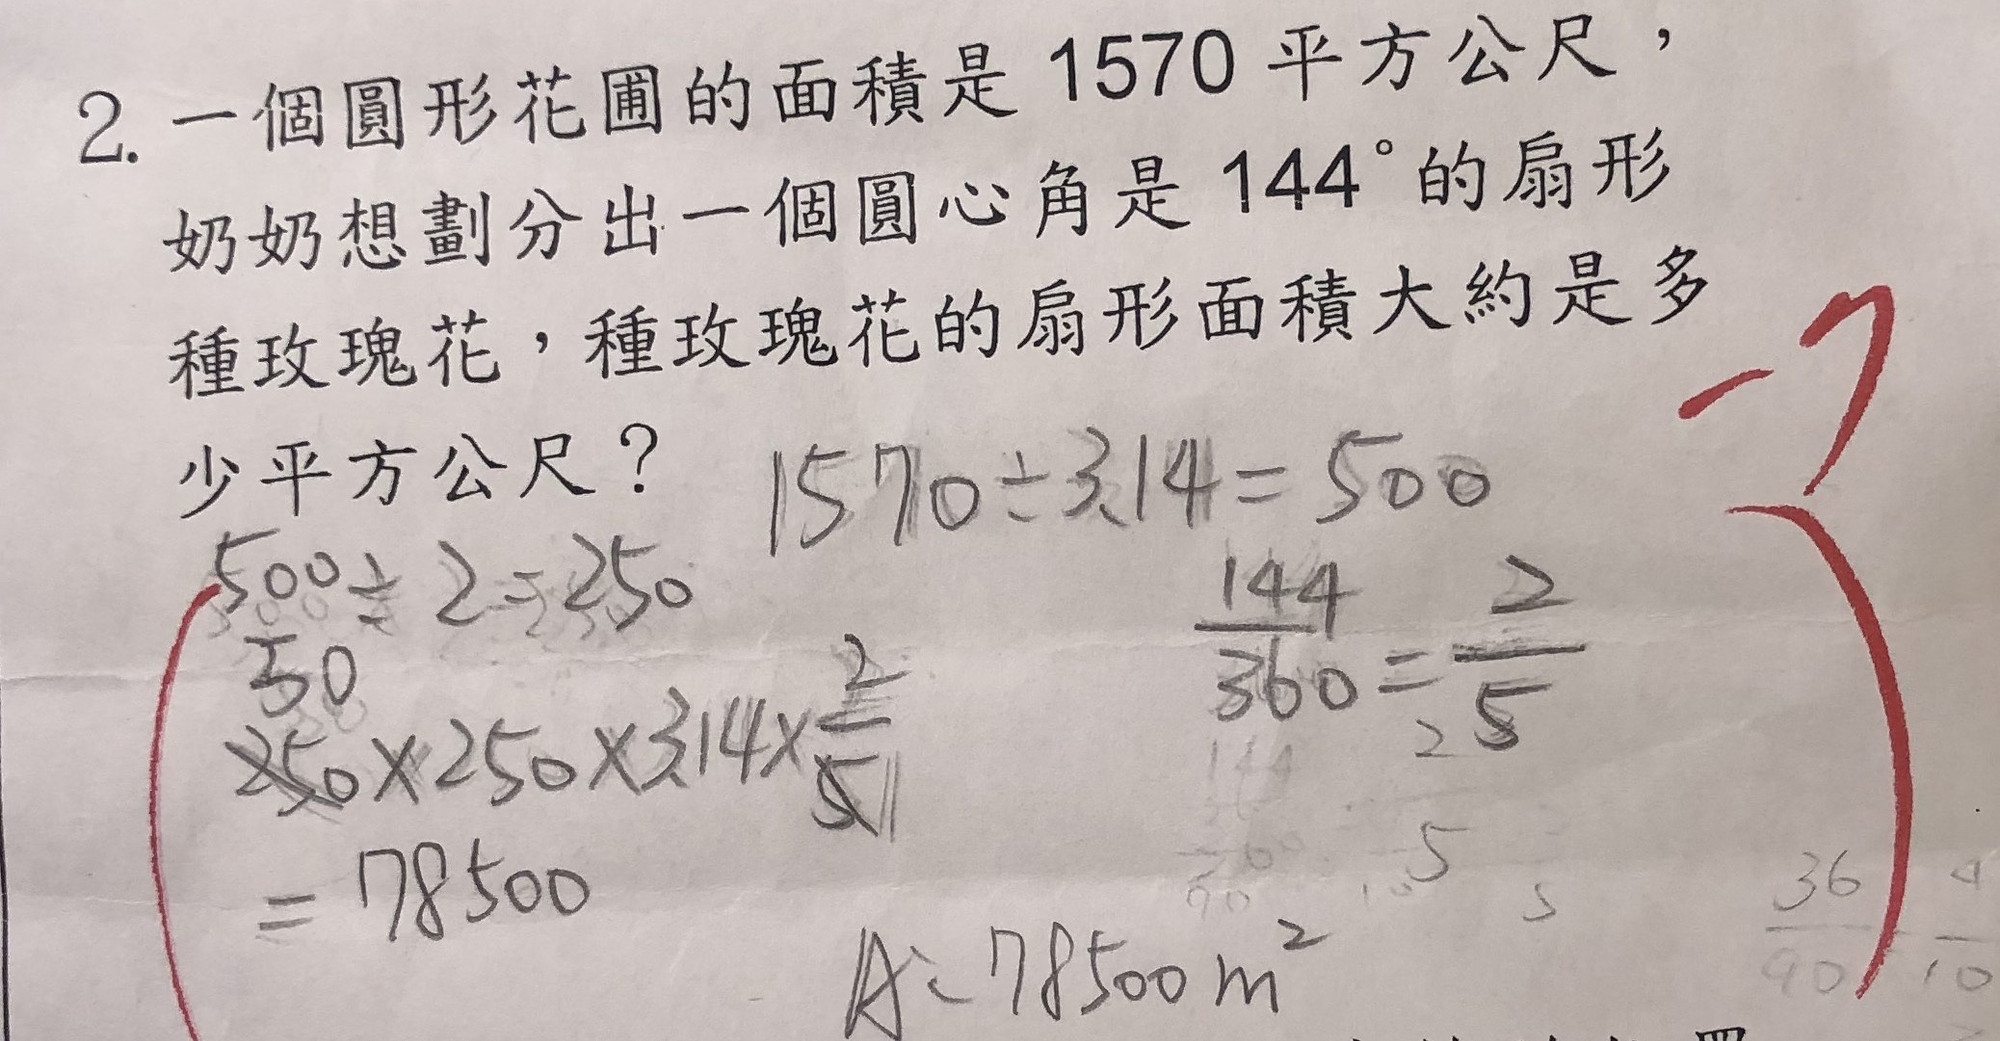 2. 一個圓形花圃的面積是 1570 平方公尺，
奶奶想劃分出一個圓心角是 144°的扇形
種玫瑰花，種玫瑰花的扇形面積大約是多
少平方公尺？
-7
1570÷3.14=500
500÷2=250
144/360=2/5
50
250×250×3.14×2/5 1
=78500
A：78500m²
2
5
5
36/90
4/10